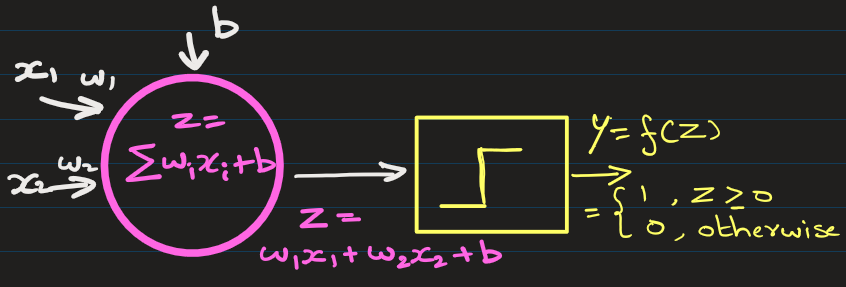 b
x₁ w₁
x₂ w₂
z =
∑wᵢxᵢ+b
z =
w₁x₁+w₂x₂+b
y = f(z)
= { 1, z ≥ 0
0, otherwise